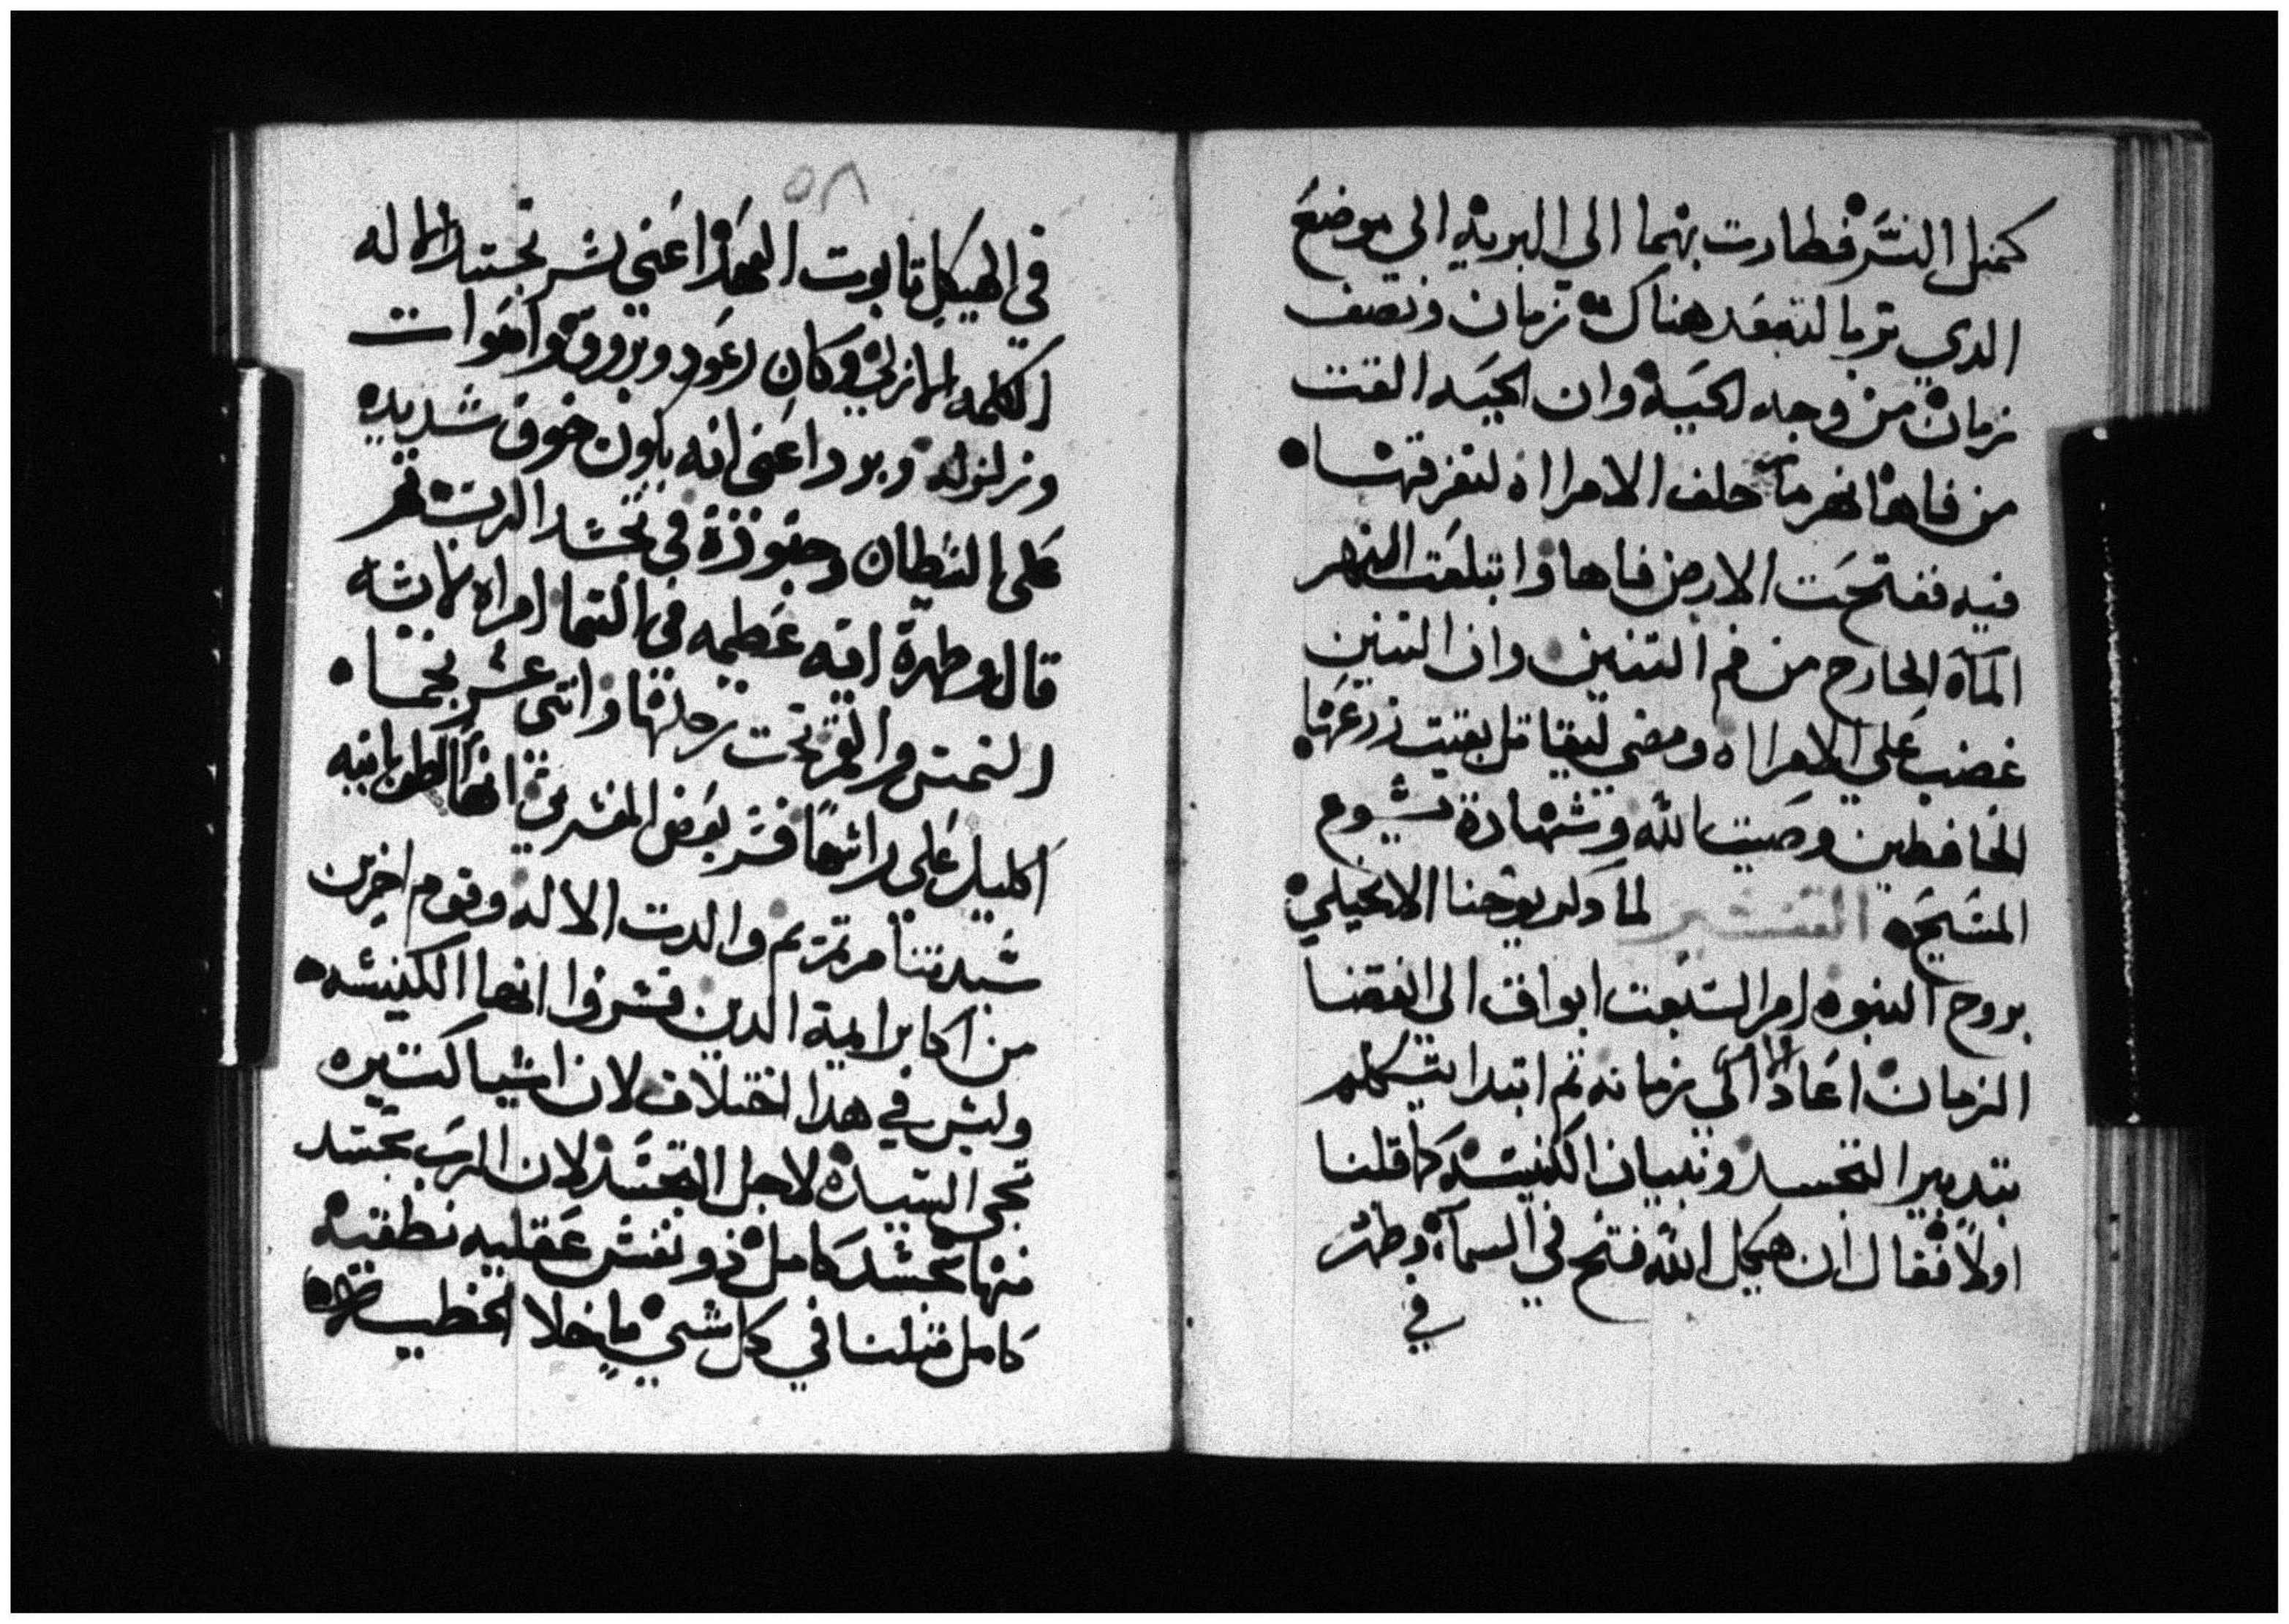 كمثل النسر فطارت بهما الى البريه الي موضع
الدي تربا لتبعد هناك زمان ونصف
زمان من وجه الحيه وان الحيه القت
من فاها نهر ما خلف الامرااه لتغرقها
فيه ففتحت الارض فاها وابتلعت النهر
المآء الخارج من فم التنين وان التنين
غضب علي الامرااه ومضي ليقاتل بقيت زرعها
الحافظين وصيت الله وشهادة يسوع
المسيح التفسير لما دكر يوحنا الانجيلي
بروح النبوه امر السبعت ابواق الى انقضا
الزمان اعاد الي زمانه تم ابتدا يتكلم
بتدبير التجسد وتبيان الكنيسه كما قلنا
اولاً فقال ان هيكل الله فتح في السمآء وظهر
في
٥٨
في الهيكل تابوت العهد اعني بسر تجسد الاله
الكلمه الازلي وكان رعود وبروق واصوات
وزلزله وبرد اعني انه يكون خوف شديد
على الشيطان وجنوده في تجسد الرب تم
قال وظهرة ايه عظيمه في السما امراه لابسه
الشمس والقمر تحت رجليها واتنى عشر نجما
اكليل على راسها فسر بعض المفسرين انها الطوبانيه
سيدتنا مرتمريم والدت الاله وقوم اخرين
من اكابر البيعة الدين فسروا انها الكنيسه
وليس في هدا اختلاف لان اشيا كتيره
تجي السيده لاجل التجسد لان الرب تجسد
منها تجسد كامل ذو نفس عقليه نطقيه
كامل متلنا في كل شي ما خلا الخطيه